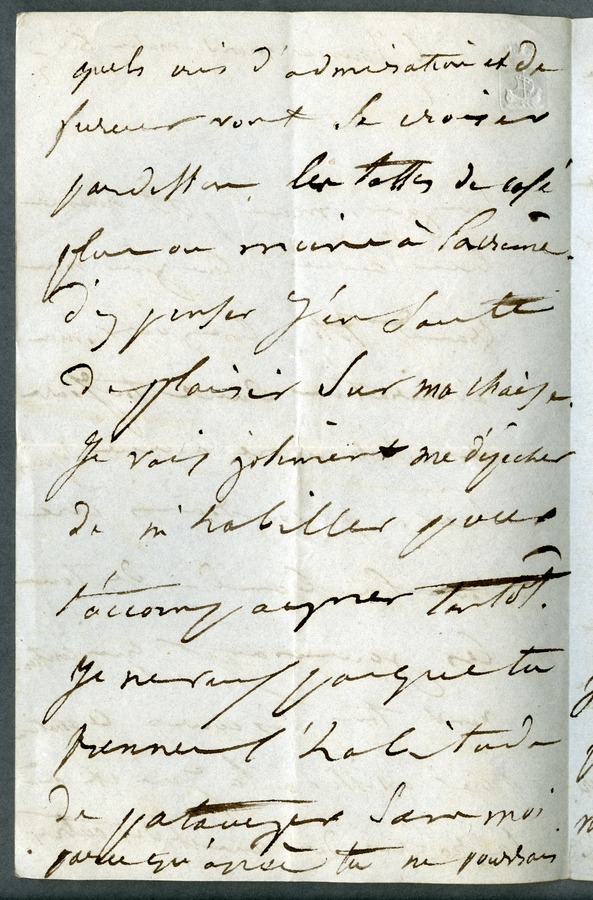 quels cris d'admiration et de
fureur vont se croiser
pardessus les tasses de café
plus ou moins à la crême.
d'y penser j'en saute
de plaisir sur ma chaise.
Je vais joliment me dépêcher
de m'habiller pour
t'accompagner tantôt.
Je ne veux pas que tu
prennes l'habitude
de patauger sans moi
parce qu'après tu ne pourrais